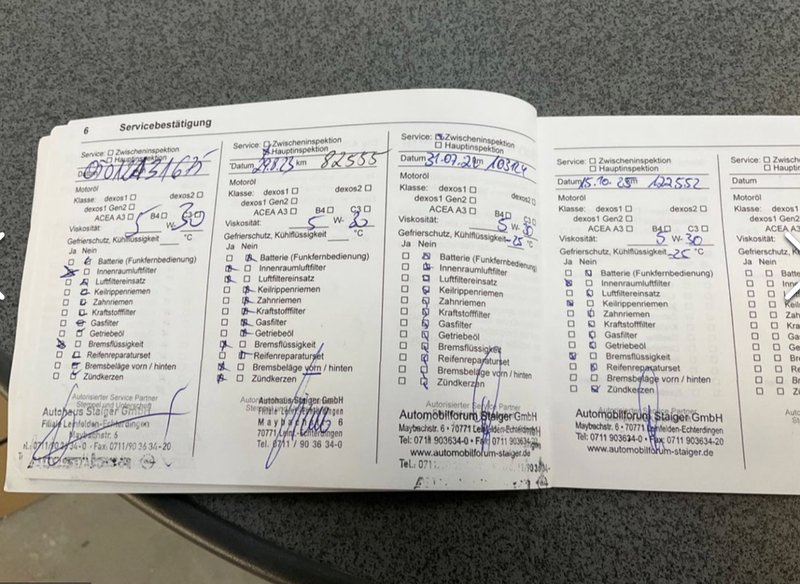 6 Servicebestätigung
Service: Zwischeninspektion
Hauptinspektion
Motoröl
Klasse: dexos1 dexos2
dexos1 Gen2
ACEA A3 B4 C3
Viskosität: 5 W- 30
Gefrierschutz, Kühlflüssigkeit °C
Ja Nein
Batterie (Funkfernbedienung)
Innenraumluftfilter
Luftfiltereinsatz
Keilrippenriemen
Zahnriemen
Kraftstofffilter
Gasfilter
Getriebeöl
Bremsflüssigkeit
Reifenreparaturset
Bremsbeläge vorn / hinten
Zündkerzen
Autorisierter Service Partner
Stempel und Unterschrift
Autohaus Staiger GmbH
Filiale Leinfelden-Echterdingen
Maybachstr. 6
Tel.: 0711/90 36 34-0 · Fax: 0711/90 36 34-20
Service: Zwischeninspektion
Hauptinspektion
Datum km 82555
Motoröl
Klasse: dexos1 dexos2
dexos1 Gen2
ACEA A3 B4 C3
Viskosität: 5 W- 30
Gefrierschutz, Kühlflüssigkeit °C
Ja Nein
Batterie (Funkfernbedienung)
Innenraumluftfilter
Luftfiltereinsatz
Keilrippenriemen
Zahnriemen
Kraftstofffilter
Gasfilter
Getriebeöl
Bremsflüssigkeit
Reifenreparaturset
Bremsbeläge vorn / hinten
Zündkerzen
Autohaus Staiger GmbH
Filiale Leinfelden-Echterdingen
Maybach 6
70771 Leinf.-Echterdingen
Tel. 0711 / 90 36 34-0
Service: Zwischeninspektion
Hauptinspektion
Datum 31.07.24 km
Motoröl
Klasse: dexos1 dexos2
dexos1 Gen2
ACEA A3 B4 C3
Viskosität: 5 W- 30
Gefrierschutz, Kühlflüssigkeit -25 °C
Ja Nein
Batterie (Funkfernbedienung)
Innenraumluftfilter
Luftfiltereinsatz
Keilrippenriemen
Zahnriemen
Kraftstofffilter
Gasfilter
Getriebeöl
Bremsflüssigkeit
Reifenreparaturset
Bremsbeläge vorn / hinten
Zündkerzen
Autorisierter Service Partner
Automobilforum Staiger GmbH
Maybachstr. 6 • 70771 Leinfelden-Echterdingen
Tel: 0711 903634-0 • Fax: 0711 903634-20
www.automobilforum-staiger.de
Service: Zwischeninspektion
Hauptinspektion
Datum 15.10.25 km 122552
Motoröl
Klasse: dexos1 dexos2
dexos1 Gen2
ACEA A3 B4 C3
Viskosität: 5 W- 30
Gefrierschutz, Kühlflüssigkeit -25 °C
Ja Nein
Batterie (Funkfernbedienung)
Innenraumluftfilter
Luftfiltereinsatz
Keilrippenriemen
Zahnriemen
Kraftstofffilter
Gasfilter
Getriebeöl
Bremsflüssigkeit
Reifenreparaturset
Bremsbeläge vorn / hinten
Zündkerzen
Autorisierter Service Partner
Automobilforum Staiger GmbH
Maybachstr. 6 • 70771 Leinfelden-Echterdingen
Tel: 0711 903634-0 • Fax: 0711 903634-20
www.automobilforum-staiger.de
Service:
Datum
Motoröl
Klasse: dexos1
dexos1
ACEA
Viskosität:
Gefrierschutz
Ja Nein